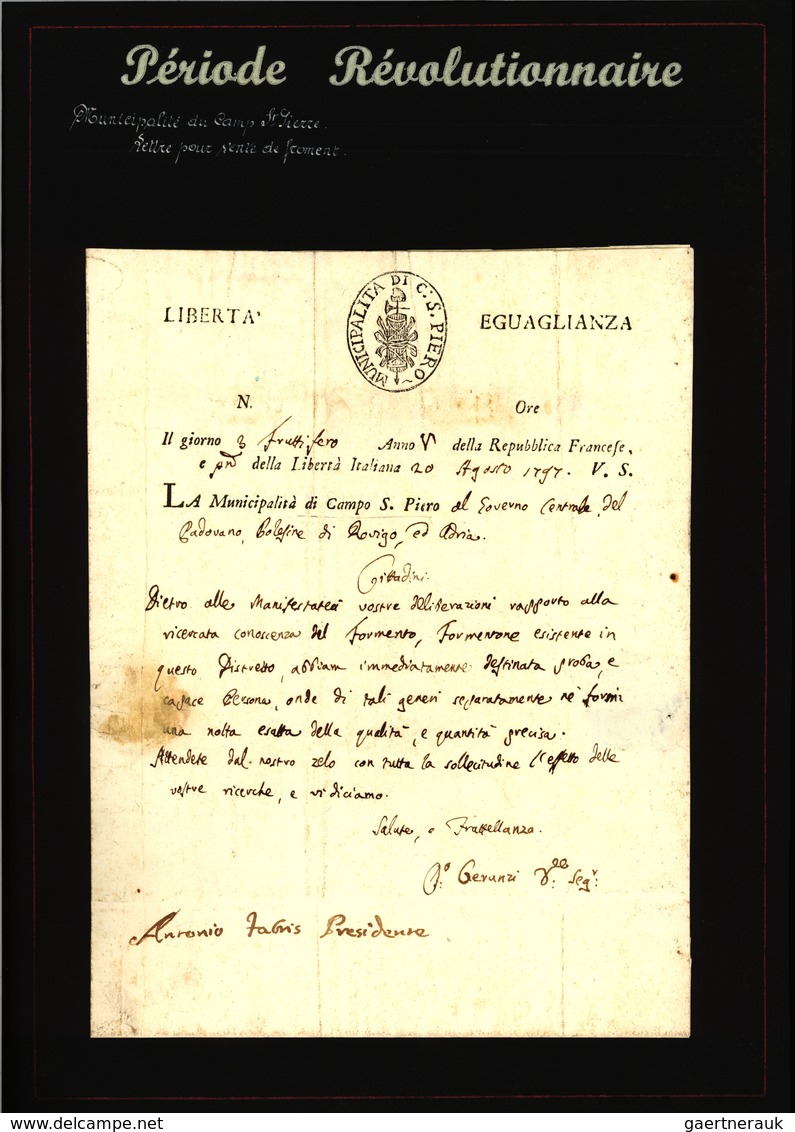 Période Révolutionnaire
Municipalité du Camp St Pierre.
Lettre pour vente de froment.
MUNICIPALITA DI C. S. PIERO
LIBERTA' EGUAGLIANZA
N. Ore
Il giorno 3 Fruttifero Anno V della Repubblica Francese,
e pmo della Libertà Italiana 20 Agosto 1797. V. S.
LA Municipalità di Campo S. Piero al Governo Centrale del
Padovano, Polesine di Rovigo, ed Adria.
Cittadini.
Dietro alle Manifestateci vostre deliberazioni rapporto alla
ricercata conoscenza del formento, formentone esistente in
questo Distretto, abbiam immediatamente destinata proba, e
capace Persona, onde di tali generi separatamente ne formi
una notta esatta della qualità, e quantità precisa.
Attendete dal nostro zelo con tutta la sollecitudine l'effetto delle
vostre ricerche, e vi diciamo.
Salute, e Frattellanza.
Gerunzi Segr:
Antonio Fabris Presidente
delcampe.net gaertnerauk